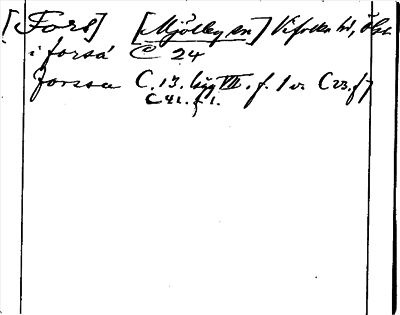 [Fors] [Mjölby sn] Vifolka hd, Ög.
i forsá C 24
forssa C. 13. lägg VII. f. 1 v. C 23. f 7
C 41. f 1.